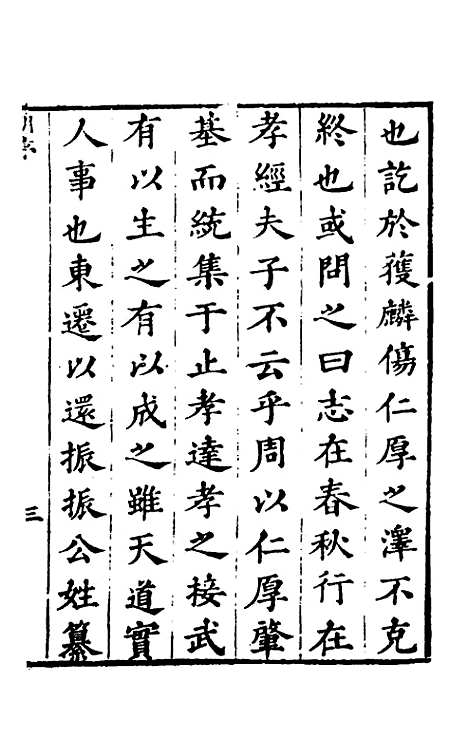 也訖於獲麟傷仁厚之澤不克
終也或問之曰志在春秋行在
孝經夫子不云乎周以仁厚肇
基而統集于止孝達孝之接武
有以生之有以成之雖天道實
人事也東遷以還振振公姓纂
三